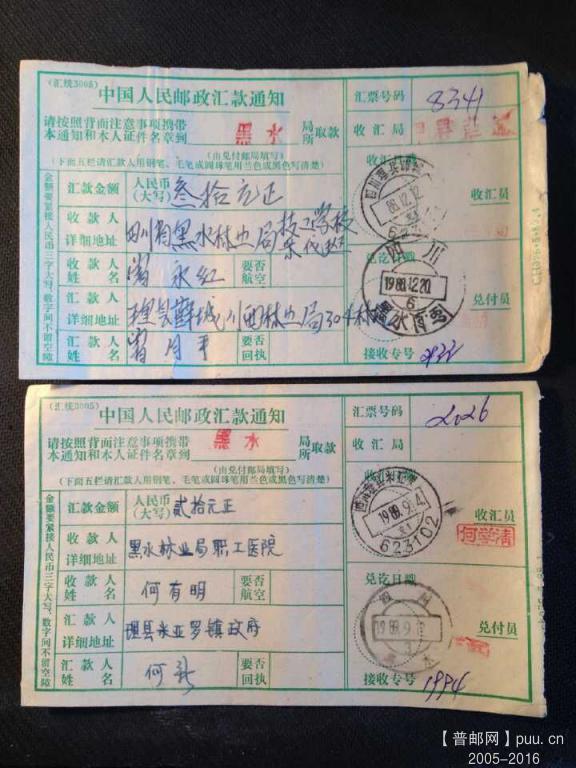 (汇线3005)
中国人民邮政汇款通知
请按照背面注意事项携带
本通知和本人证件名章到 黑水 局所取款
(由兑付邮局填写)
(下面五栏请汇款人用钢笔、毛笔或圆珠笔用兰色或黑色写清楚)
金额要紧接人民币三字大写,数字间不留空隙
汇款金额 人民币(大写) 叁拾元正
收款人详细地址 四川省黑水林业局技工学校
收款人姓名 永红 要否航空
汇款人详细地址 理县薛城川西林业局304林场
汇款人姓名 月平 要否回执
汇票号码 8341
收汇局
收汇员
88.12.12
兑讫日戳
四川
1988.12.20
6
兑付员
接收专号
(汇线3005)
中国人民邮政汇款通知
请按照背面注意事项携带
本通知和本人证件名章到 黑水 局所取款
(由兑付邮局填写)
(下面五栏请汇款人用钢笔、毛笔或圆珠笔用兰色或黑色写清楚)
金额要紧接人民币三字大写,数字间不留空隙
汇款金额 人民币(大写) 贰拾元正
收款人详细地址 黑水林业局职工医院
收款人姓名 何有明 要否航空
汇款人详细地址 理县米亚罗镇政府
汇款人姓名 何 要否回执
汇票号码 2026
收汇局
收汇员
1989.9.4
623102
何学清
兑讫日戳
四川
1989.9.12
3
兑付员
接收专号 1994
【普邮网】puu.cn
2005-2016